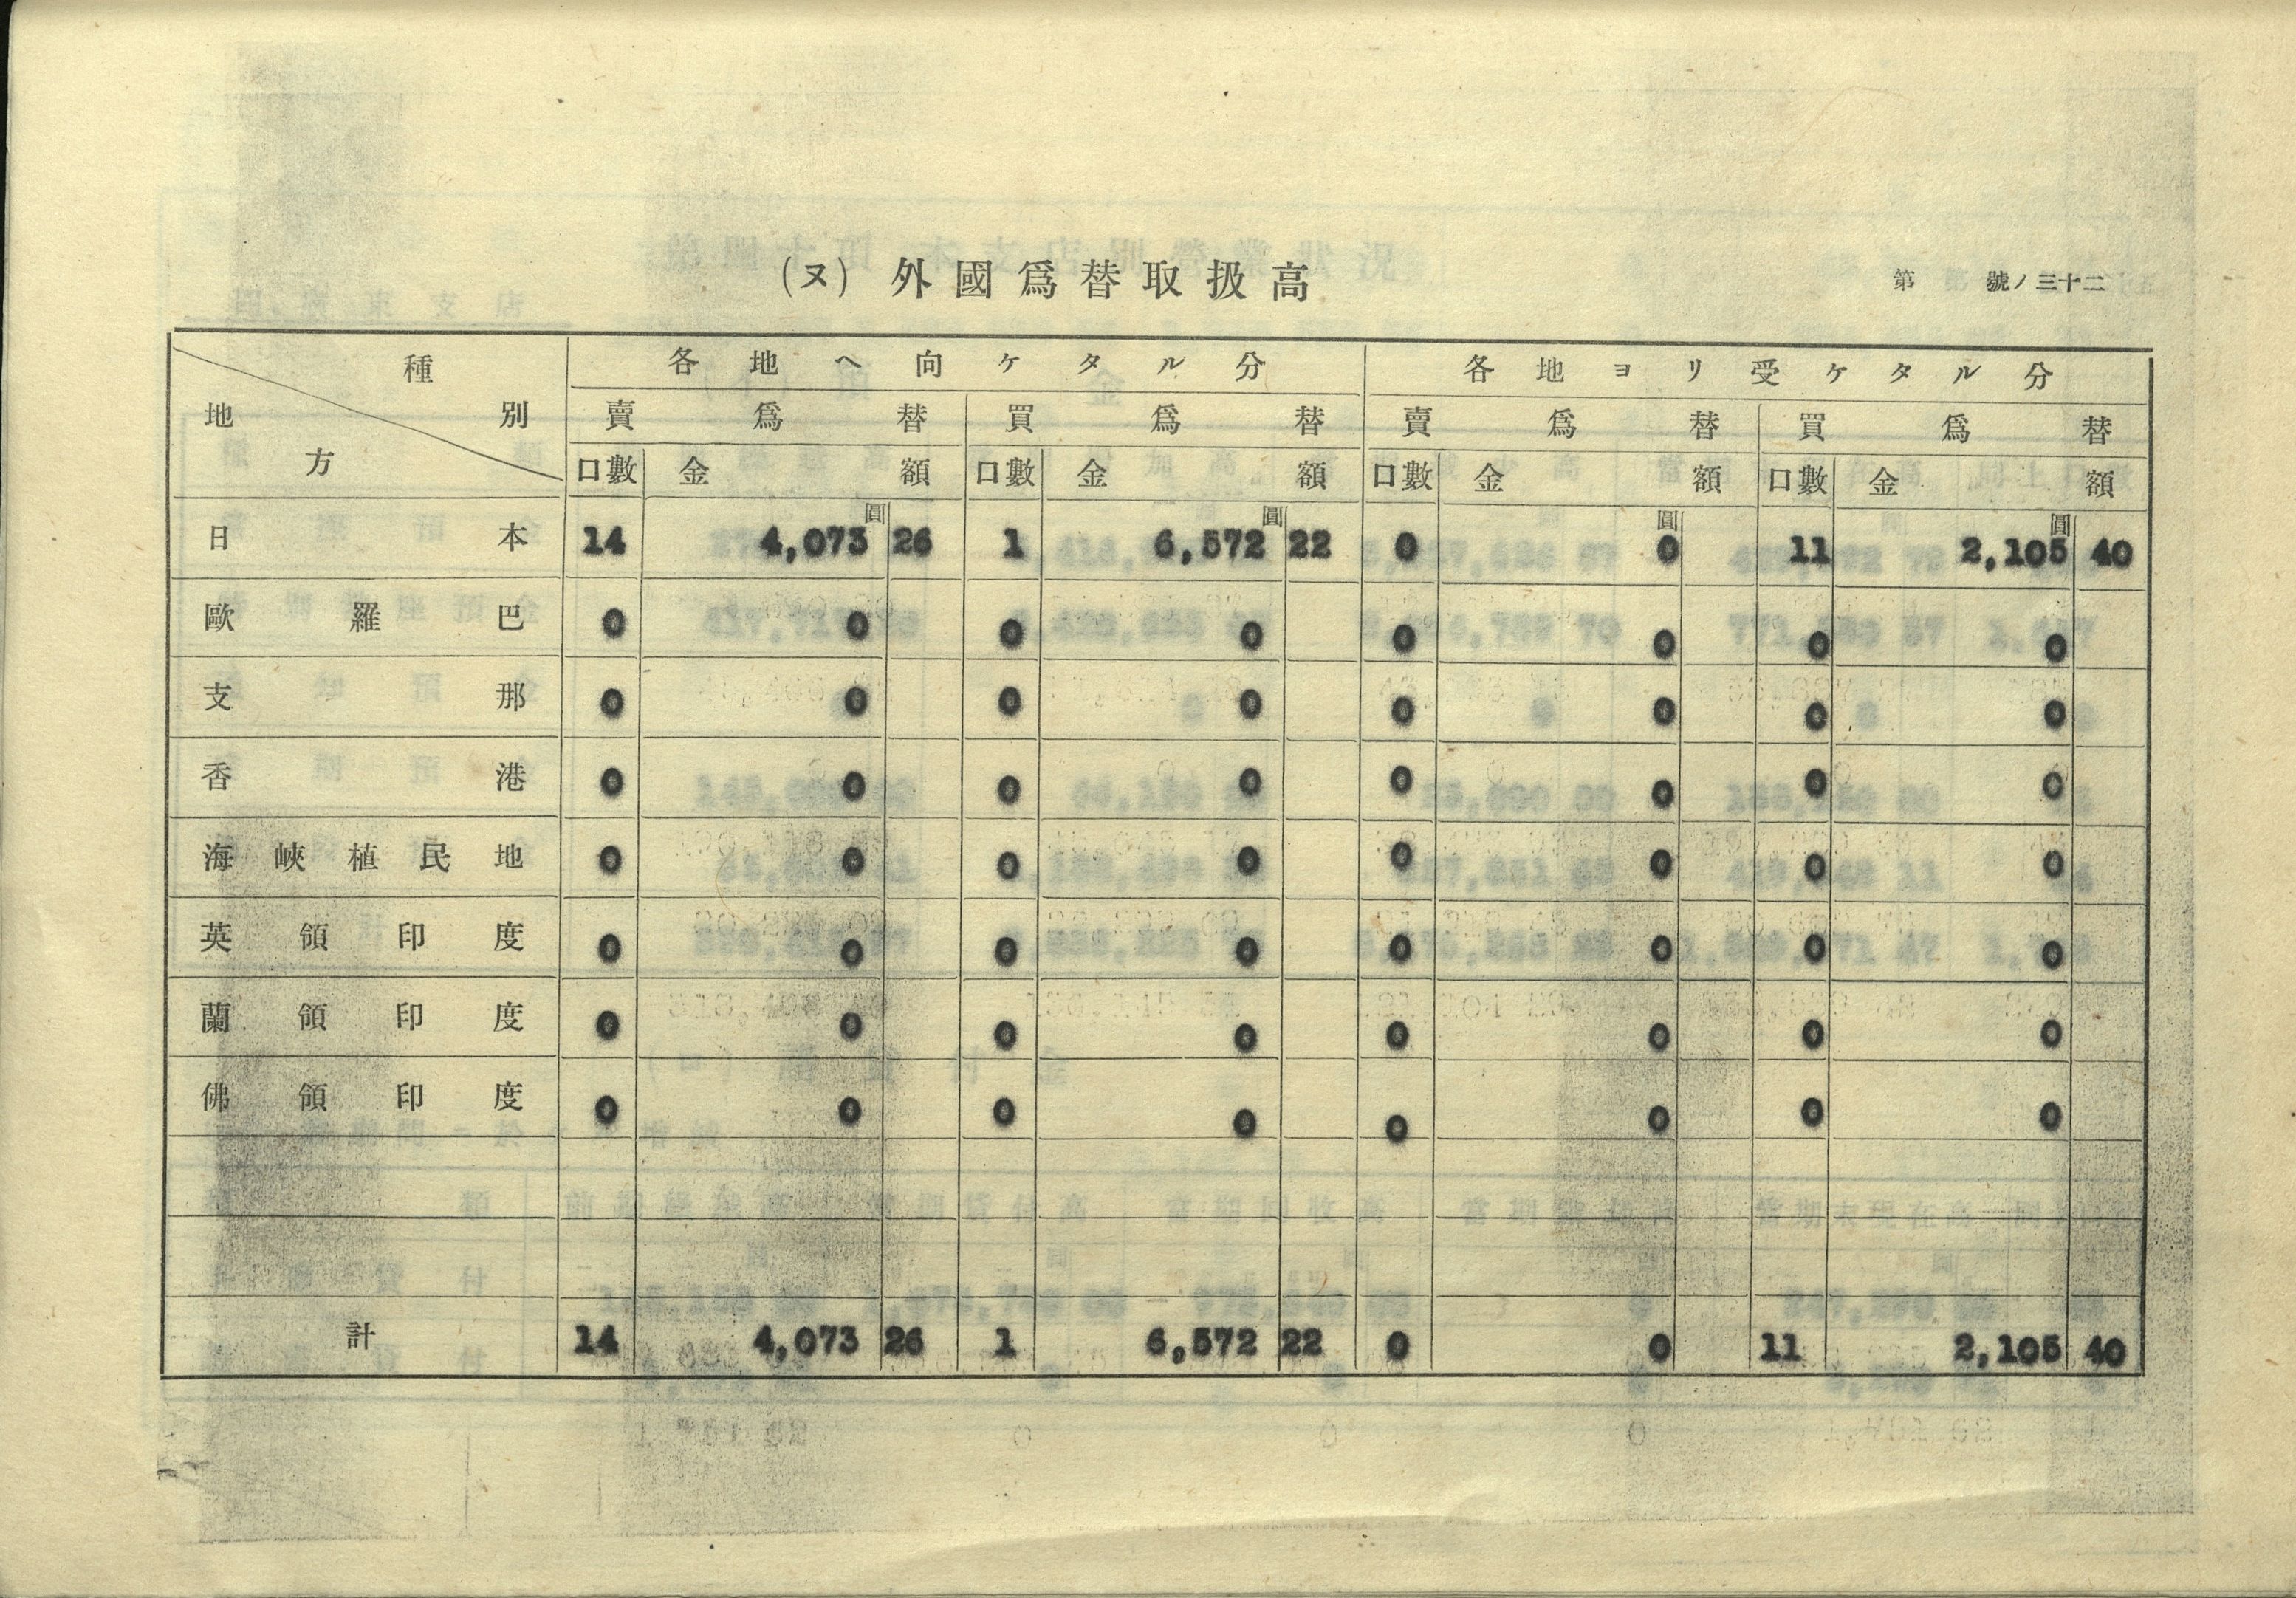 (ヌ) 外國爲替取扱高
第 號ノ三十二
種別 地方 各地ヘ向ケタル分 各地ヨリ受ケタル分
賣爲替 買爲替 賣爲替 買爲替
口數 金額 口數 金額 口數 金額 口數 金額
圓 圓 圓 圓
日本 14 4,073 26 1 6,572 22 0 0 11 2,105 40
歐羅巴 0 0 0 0 0 0 0 0
支那 0 0 0 0 0 0 0 0
香港 0 0 0 0 0 0 0 0
海峽植民地 0 0 0 0 0 0 0 0
英領印度 0 0 0 0 0 0 0 0
蘭領印度 0 0 0 0 0 0 0 0
佛領印度 0 0 0 0 0 0 0 0
計 14 4,073 26 1 6,572 22 0 0 11 2,105 40